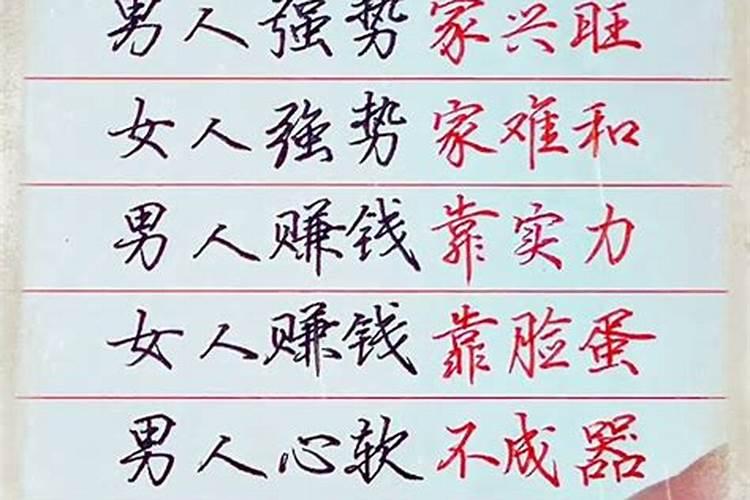 男人强势家兴旺
女人强势家难和
男人赚钱靠实力
女人赚钱靠脸蛋
男人心软不成器